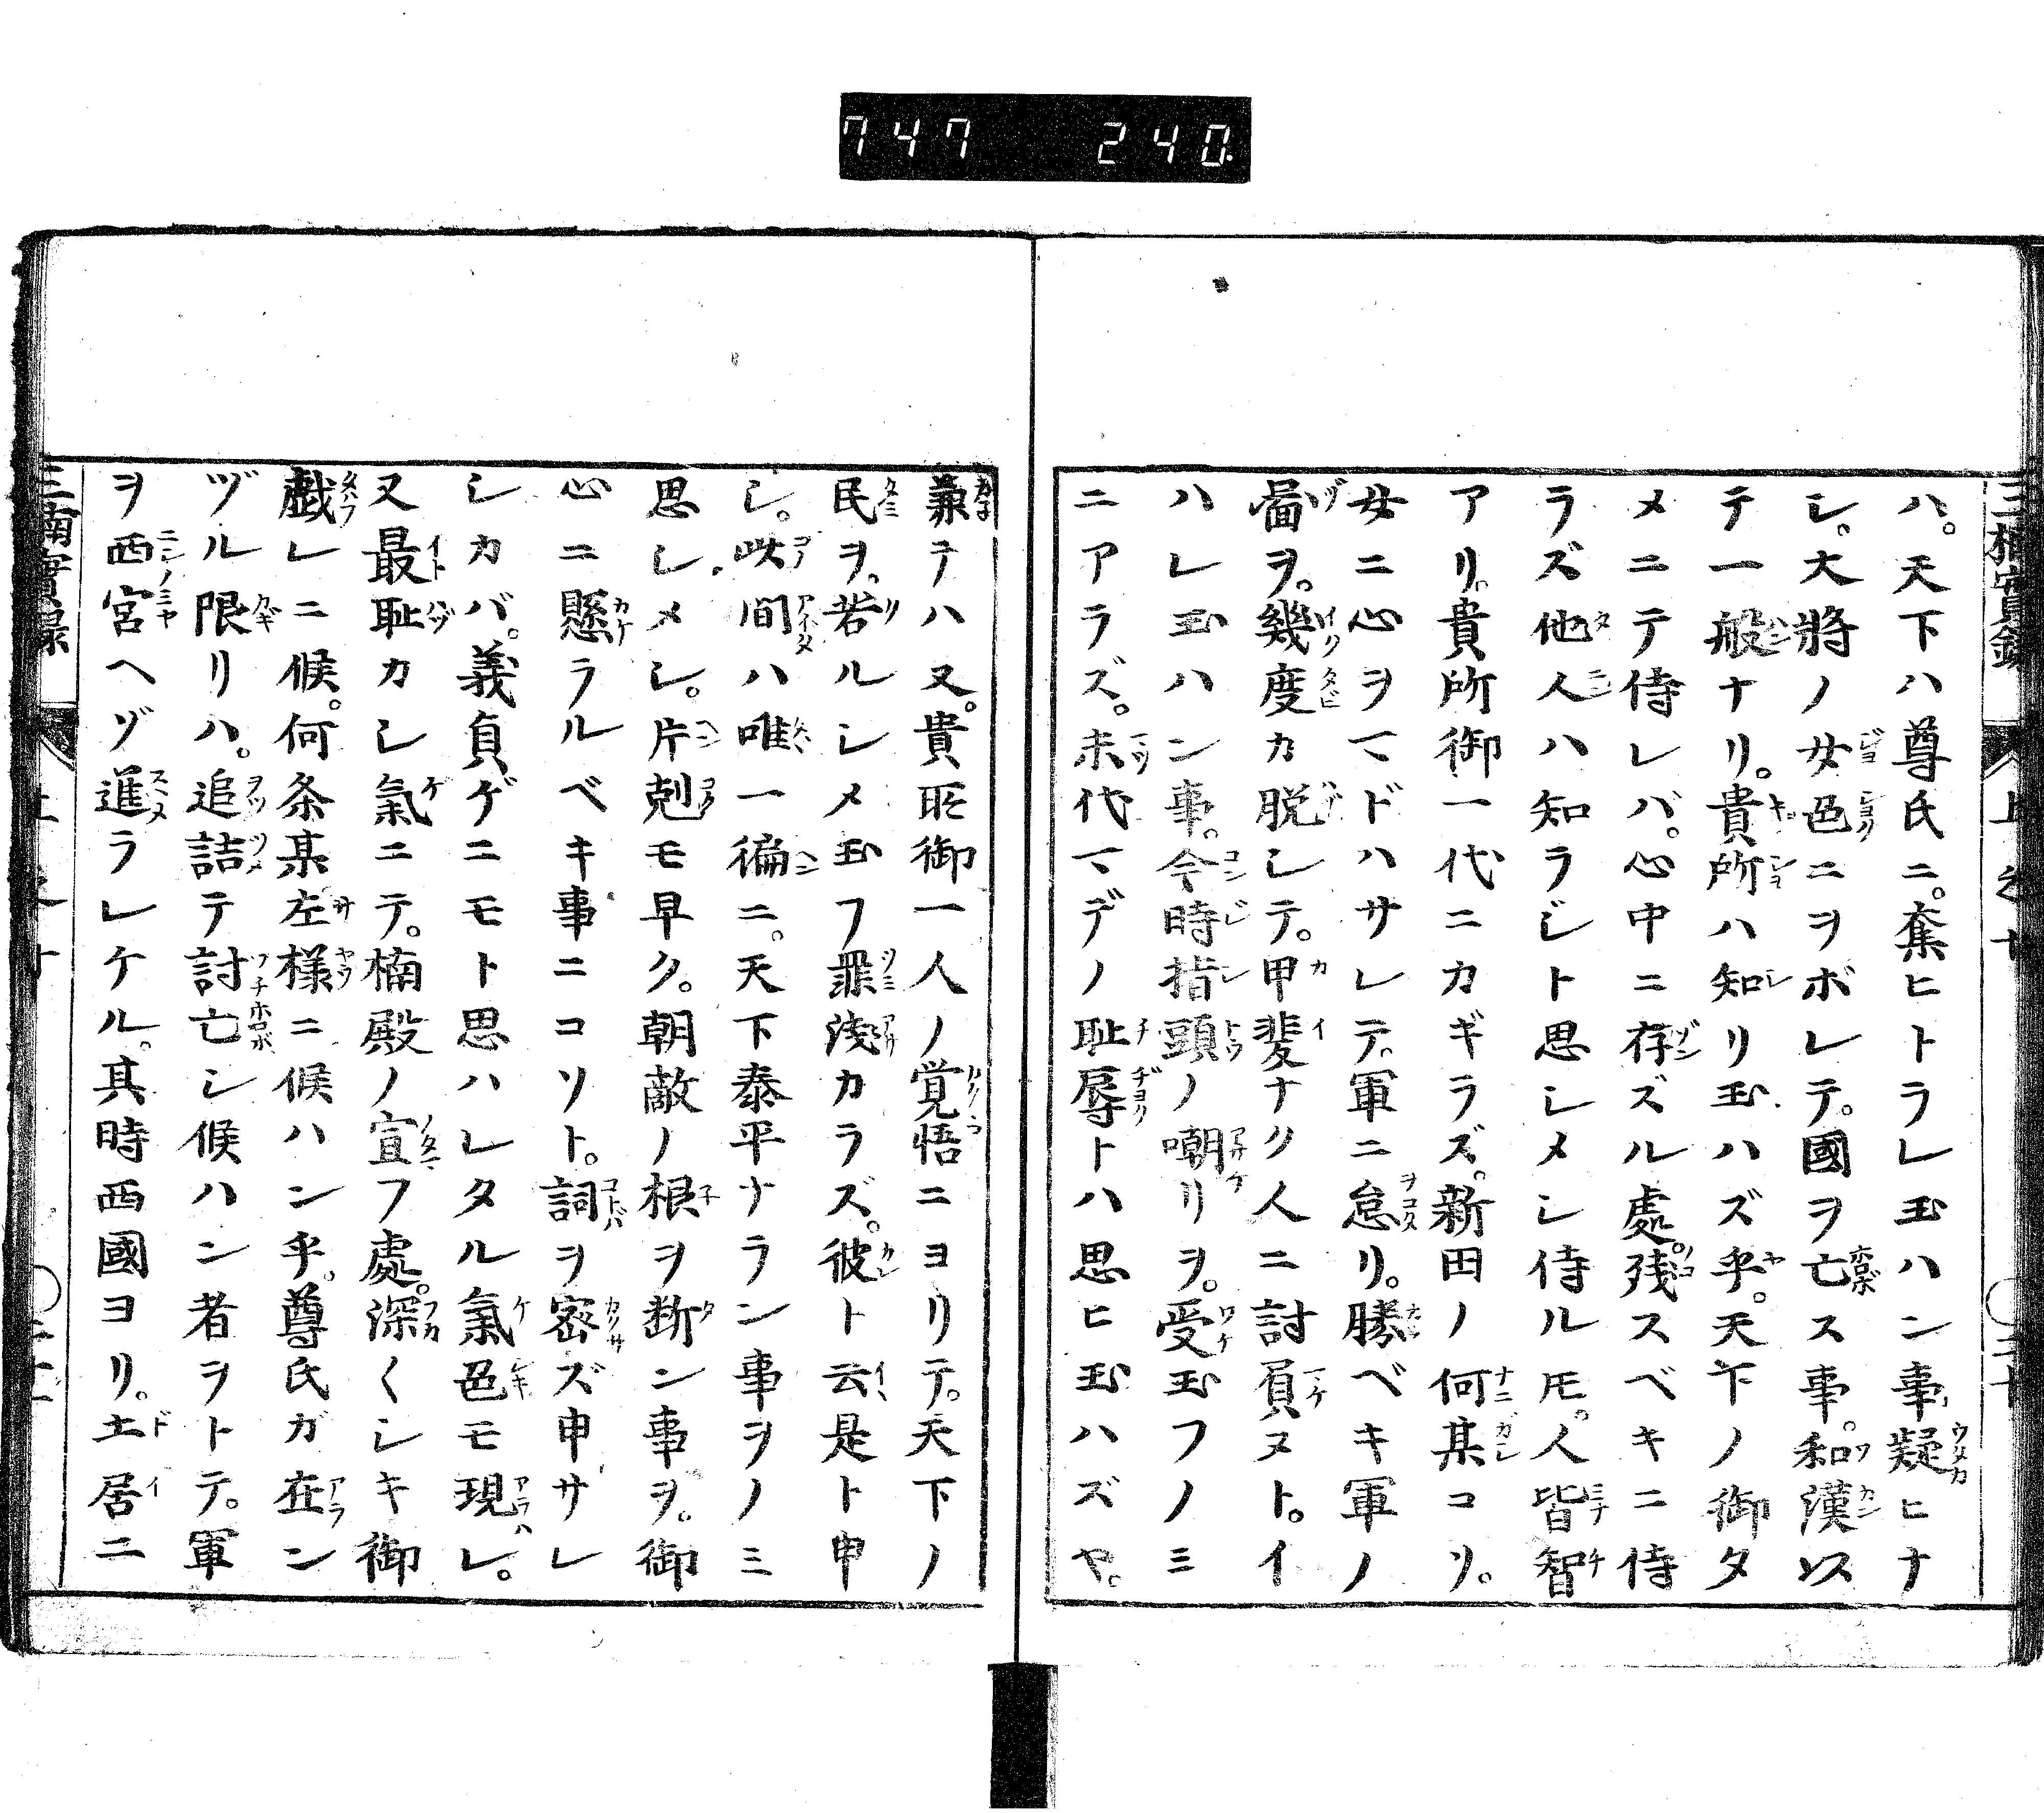 747 240.
ハ。天下ハ尊氏ニ。奪ヒトラレ玉ハン事疑ヒナ
シ。大將ノ女色ニヲボレテ。國ヲ亡ス事。和漢以
テ一般ナリ。貴所ハ知リ玉ハズ乎。天下ノ御タ
メニテ侍レバ。心中ニ存ズル處。残スベキニ侍
ラズ他人ハ知ラジト思シメシ侍ルモ。人皆智
アリ。貴所御一代ニカギラズ。新田ノ何某コソ。
女ニ心ヲマドハサレテ。軍ニ怠リ。勝ベキ軍ノ
圖ヲ。幾度カ脱シテ。甲斐ナク人ニ討負ヌト。イ
ハレ玉ハン事。今時指頭ノ嘲リヲ。受玉フノミ
ニアラズ。末代マデノ恥辱トハ思ヒ玉ハズヤ。
兼テハ又。貴所御一人ノ覚悟ニヨリテ。天下ノ
民ヲ。若ルシメ玉フ罪浅カラズ。彼ト云是ト申
シ。此間ハ唯一徧ニ。天下泰平ナラン事ヲノミ
思シメシ。片剋モ早ク。朝敵ノ根ヲ断ン事ヲ。御
心ニ懸ラルベキ事ニコソト。詞ヲ密ズ申サレ
シカバ。義貞ゲニモト思ハレタル氣色モ現レ。
又最恥カシ氣ニテ。楠殿ノ宣フ處。深くシキ御
戯レニ候。何条某左様ニ候ハン乎。尊氏ガ在ン
ヅル限リハ。追詰テ討亡シ候ハン者ヲトテ。軍
ヲ西宮ヘヅ進ラレケル。其時西國ヨリ。土居ニ